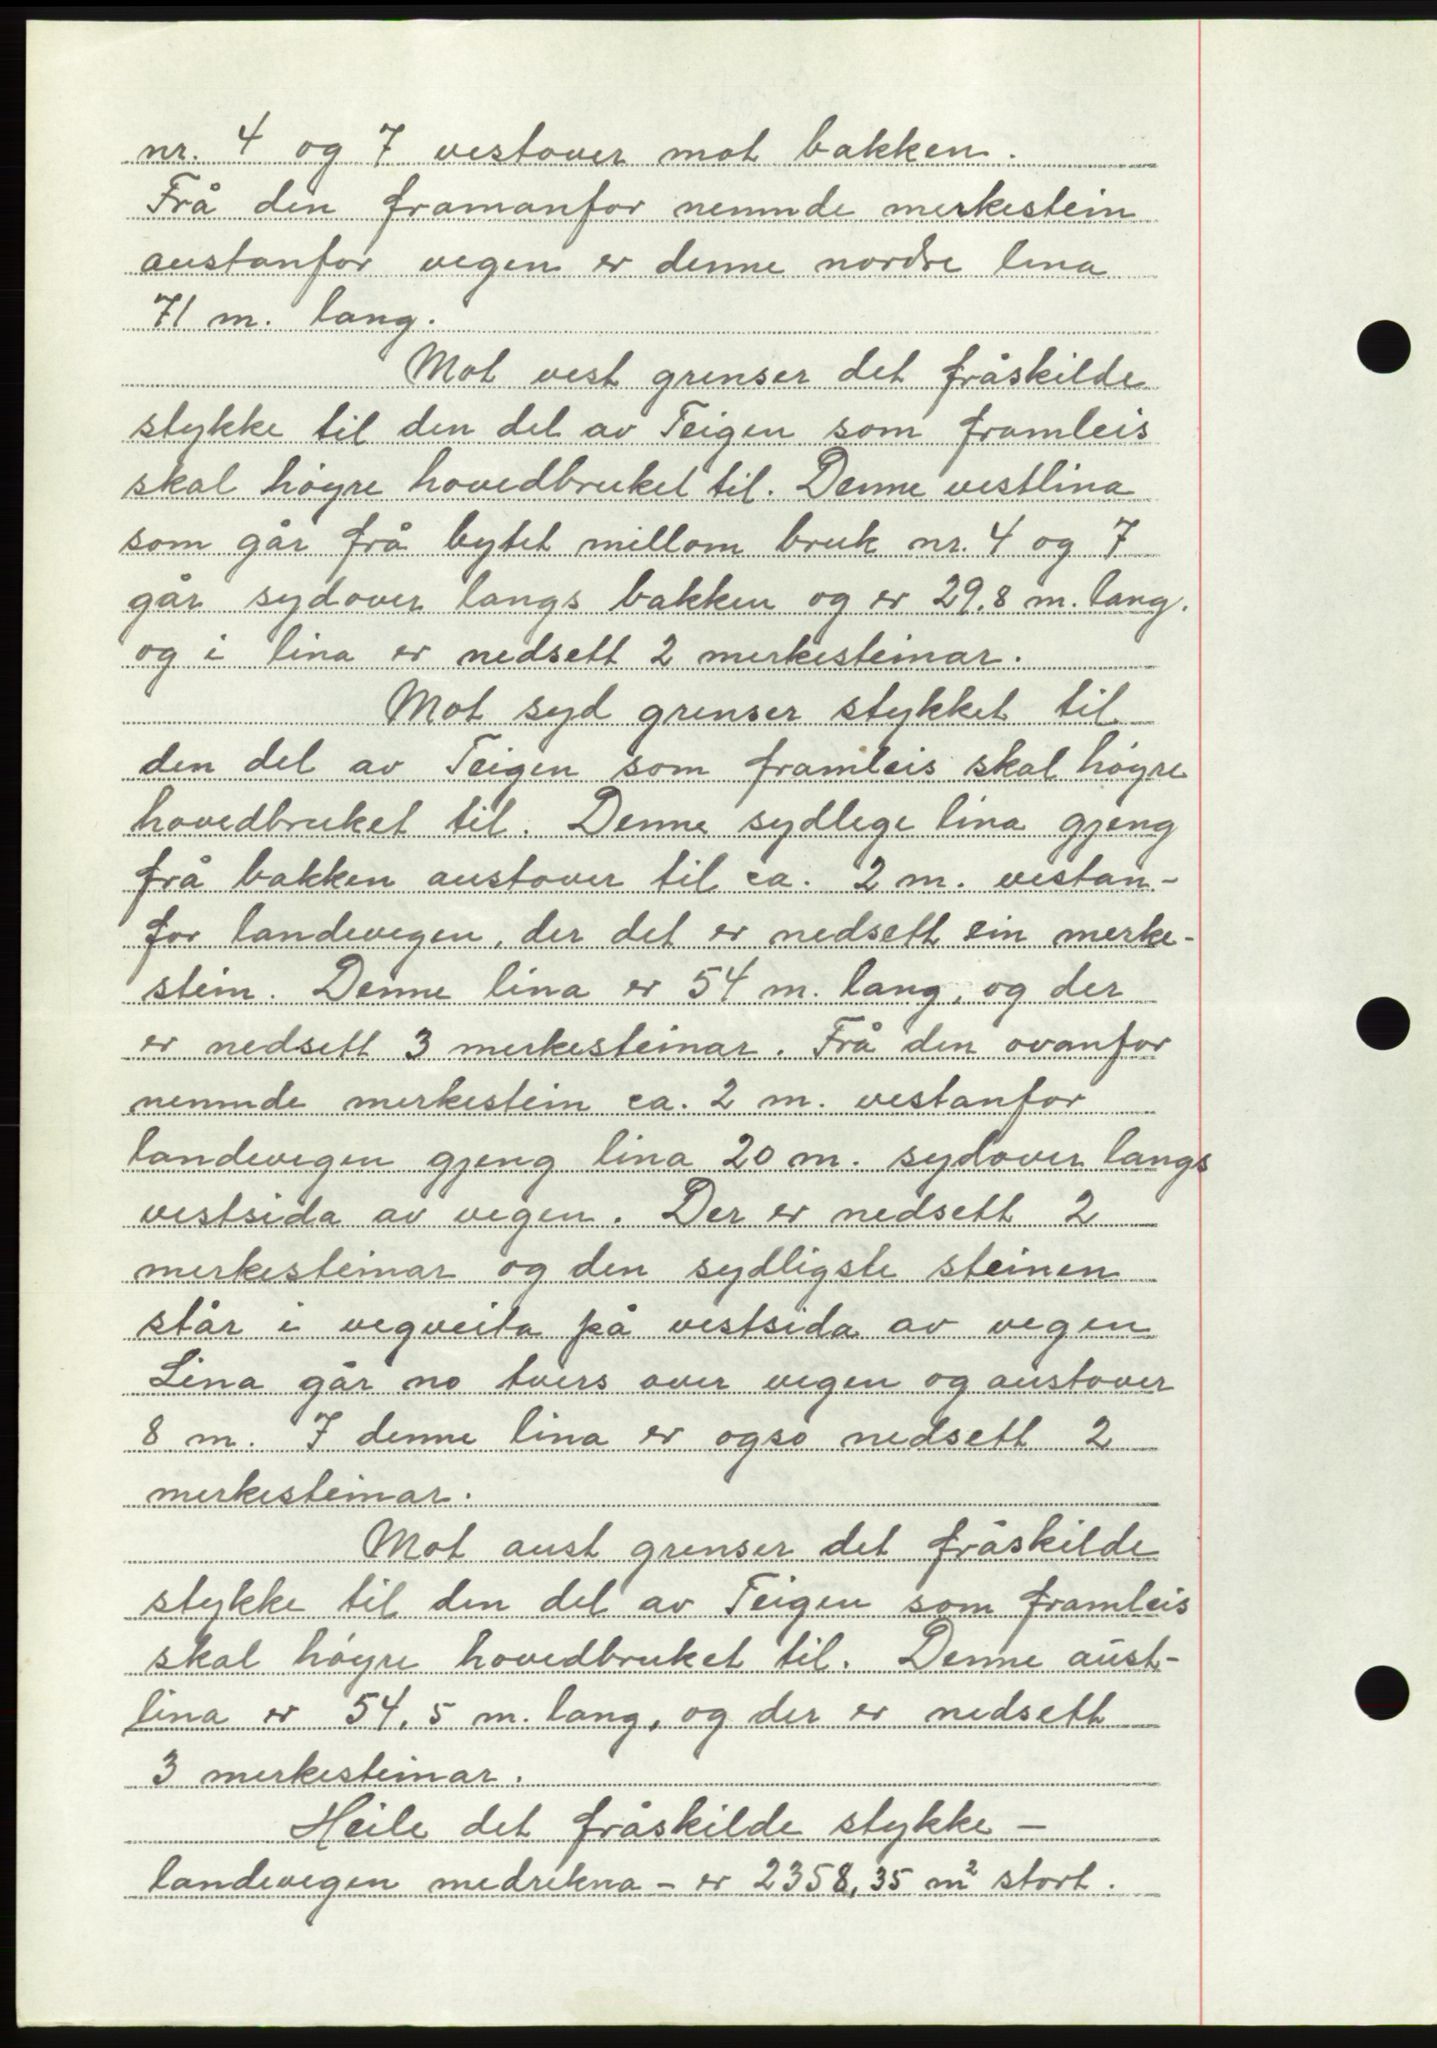 nr. 4 og 7 vestover mot bakken.
Frå den framanfor nemnde merkestein
austanfor vegen er denne nordre lina
71 m. lang.
Mot vest grenser det fråskilde
stykke til den del av Teigen som framleis
skal högre hovedbruket til. Denne vestlina
som går frå bytet millom bruk nr. 4 og 7
går sydover langs bakken og er 29.8 m. lang.
og i lina er nedsett 2 merkesteinar.
Mot syd grenser stykket til
den del av Teigen som framleis skal högre
hovedbruket til. Denne sydlege lina gjeng
frå bakken austover til ca. 2 m. vestan-
for landevegen, der det er nedsett ein merke-
stein. Denne lina er 54 m. lang, og der
er nedsett 3 merkesteinar. Frå den ovanfor
nemnde merkestein ca. 2 m. vestanfor
landevegen gjeng lina 20 m. sydover langs
vestsida av vegen. Der er nedsett 2
merkesteinar og den sydligste steinen
står i vegveita på vestsida av vegen
Lina går no tvers over vegen og austover
8 m. I denne lina er ogso nedsett 2
merkesteinar.
Mot aust grenser det fråskilde
stykke til den del av Teigen som framleis
skal högre hovedbruket til. Denne aust-
lina er 54,5 m. lang, og der er nedsett
3 merkesteinar.
Heile det fråskilde stykke –
landevegen medrekna – er 2358,35 m² stort.